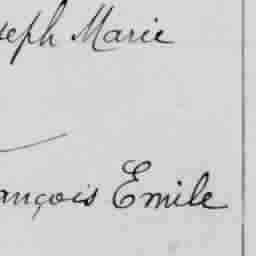 seph Marie
ançois Emile